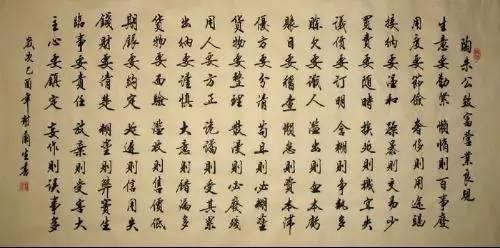 陶朱公致富營業良規
生意要勤緊 懶惰則百事廢
用度要節儉 奢侈則用途竭
接納要溫和 躁暴則交易少
買賣要隨時 挨延則機宜失
議價要訂明 含糊則爭執多
賒欠要識人 濫出則血本虧
賬目要稽查 懶怠則資本滯
優劣要分清 苟且則必糊塗
貨物要整理 散漫則必廢殘
用人要方正 詭譎則受其累
出納要謹慎 大意則錯漏多
貨物要面驗 濫放則售價低
期限要約定 延遲則信用失
錢財要清楚 糊塗則弊竇生
臨事要責任 放棄則受害大
主心要鎮定 妄作則誤事多
歲次己酉年 書